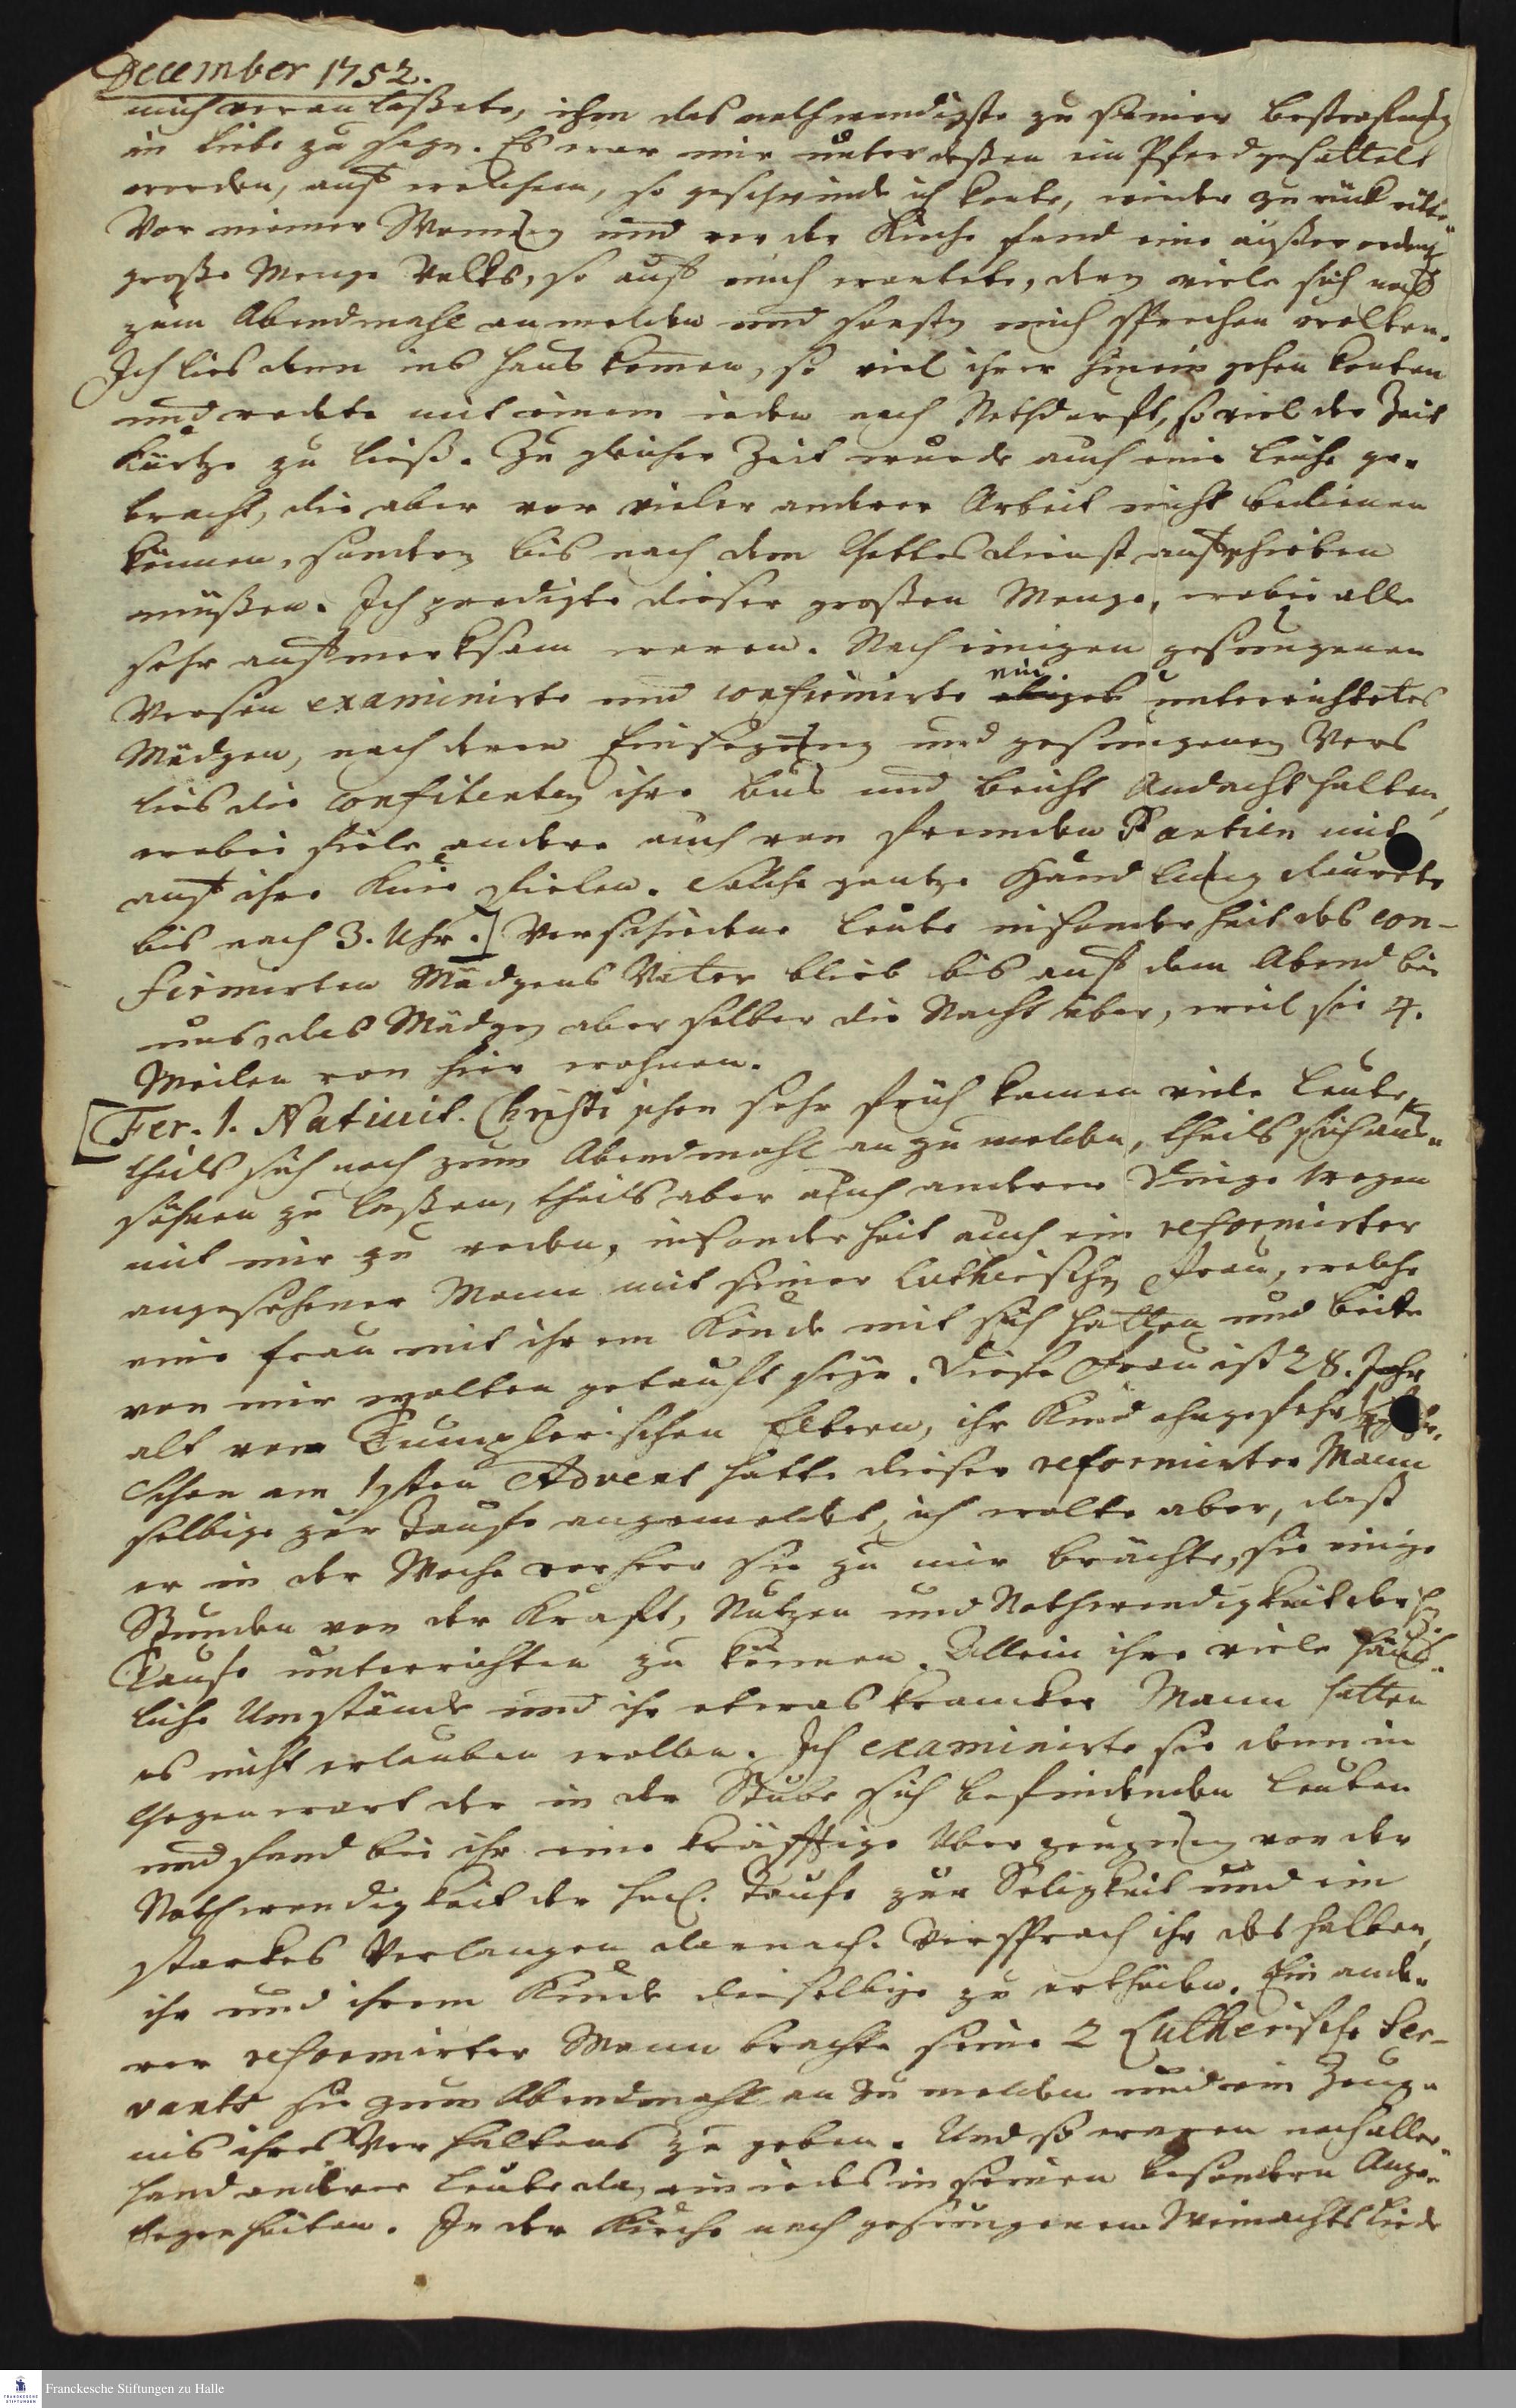 December 1752.
mich veranlaßete, ihm das nothwendigste zu seiner bestrafung
in Liebe zu sagen. Es war mir unterdeßen ein Pferd gesattelt
worden, auf welchem, so geschwinde ich konte, wieder zurück ritte.
Vor meiner Wonung und vor der Kirche fand eine außerordentl.
große Menge Volks, so auf mich wartete, denn viele sich noch
zum Abendmahl anmelden und sonsten mich sprechen wolten.
Ich lies denn ins Haus komen, so viel ihrer hinein gehen konten
und redete mit einem ieden nach Nothdurft, so viel der Zeit
Kürtze zu ließ. Zu gleicher Zeit wurde auch eine Leiche ge-
bracht, die aber vor vieler anderer Arbeit nicht bedienen
können, sondern bis nach dem Gottesdienst aufschieben
müßen. Ich predigte dieser großen Menge, wobei alle
sehr aufmerksam waren. Nach einigen gesungenen
Versen examinirte und confirmirte ein unterrichtetes
Mädgen, nach deren Einsegnung und gesungenen Vers
lies die confitenten ihre bus und beicht Andacht halten,
wobei viele andere auch von fremden Partien mit
auf ihre Knie fielen. Solche gantze Handlung daurete
bis nach 3. Uhr.] Verschiedene Leute insonderheit des con-
firmirten Mädgens Vater blieb bis auf den Abend bei
uns, das Mädgen aber selber die Nacht über, weil sie 4.
Meilen von hier wohnen.
[Fer. 1. Nativit. Christi schon sehr früh kamen viele Leute,
theils sich noch zum Abendmahl an zu melden, theils sich aus-
söhnen zu laßen, theils aber auch anderer Dinge wegen
mit mir zu reden, insonderheit auch ein reformirter
angesehener Mann mit seiner Lutherischen Frau, welche
eine Frau mit ihrem Kinde mit sich hatten und beide
von mir wolten getauft seyn. Diese Frau ist 28. Jahr
alt von Tumplerischen Eltern, ihr Kind ohngefehr
Schon am 1sten Advent hatte dieser reformirter Mann
selbige zur Taufe angemeldet, ich wolte aber, daß
er in der Woche vorher sie zu mir brächte, sie einige
Stunden von der Kraft, Nutzen und Nothwendigkeit der
Taufe unterrichten zu können. Allein ihre viele häus-
liche Umstände und ihr etwas krancker Mann hatten
es nicht erlauben wollen. Ich examinirte sie denn in
Gegenwart der in der Stube sich befindenden Leuten
und fand bei ihr eine kräfftige Überzeugung von der
Nothwendigkeit der heil. Taufe zur Seligkeit und ein
starkes Verlangen darnach. Versprach ihr deshalben,
ihr und ihrem Kinde dieselbige zu ertheilen. Ein ande-
rer reformirter Mann brachte seine 2 Lutherische Ser-
vants sie zum Abendmahl an zu melden und ein Zeug-
nis ihres Verhaltens zu geben. Und so waren noch aller-
hand andere Leute da, ein iedes in seinen besondern Ange-
legenheiten. In der Kirche nach gesungenem Weinachtsliede
Franckesche Stiftungen zu Halle